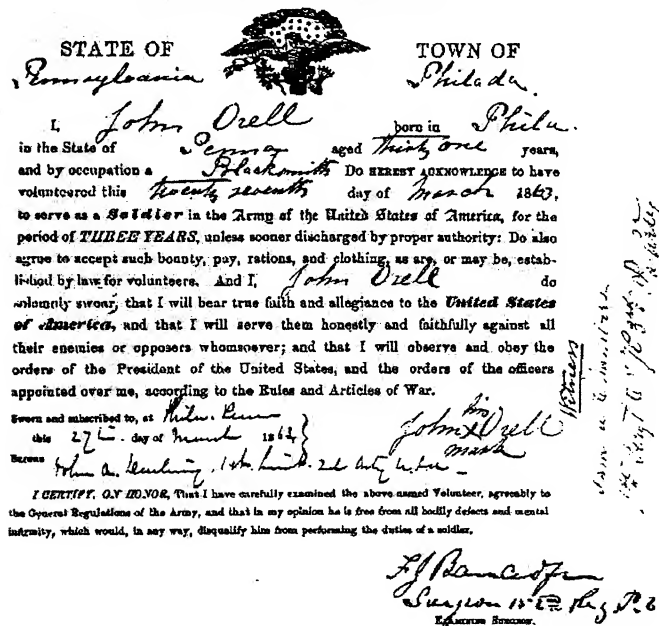 STATE OF TOWN OF
Pennsylvania Philada.
I, John Orell born in Phila.
in the State of Penna aged thirty one years,
and by occupation a Blacksmith Do HEREBY ACKNOWLEDGE to have
volunteered this twenty seventh day of March 1863,
to serve as a Soldier in the Army of the United States of America, for the
period of THREE YEARS, unless sooner discharged by proper authority: Do also
agree to accept such bounty, pay, rations, and clothing, as are, or may be, estab-
lished by law for volunteers. And I, John Orell do
solemnly swear, that I will bear true faith and allegiance to the United States
of America, and that I will serve them honestly and faithfully against all
their enemies or opposers whomsoever; and that I will observe and obey the
orders of the President of the United States, and the orders of the officers
appointed over me, according to the Rules and Articles of War.
Sworn and subscribed to, at
this 27th day of March
John his X mark Orell
BEFORE John A. 1st Lieut. 2d Arty
I CERTIFY, ON HONOR, That I have carefully examined the above named Volunteer, agreeably to
the General Regulations of the Army, and that in my opinion he is free from all bodily defects and mental
infirmity, which would, in any way, disqualify him from performing the duties of a soldier.
Surgeon Reg P.
EXAMINING SURGEON.
Witness